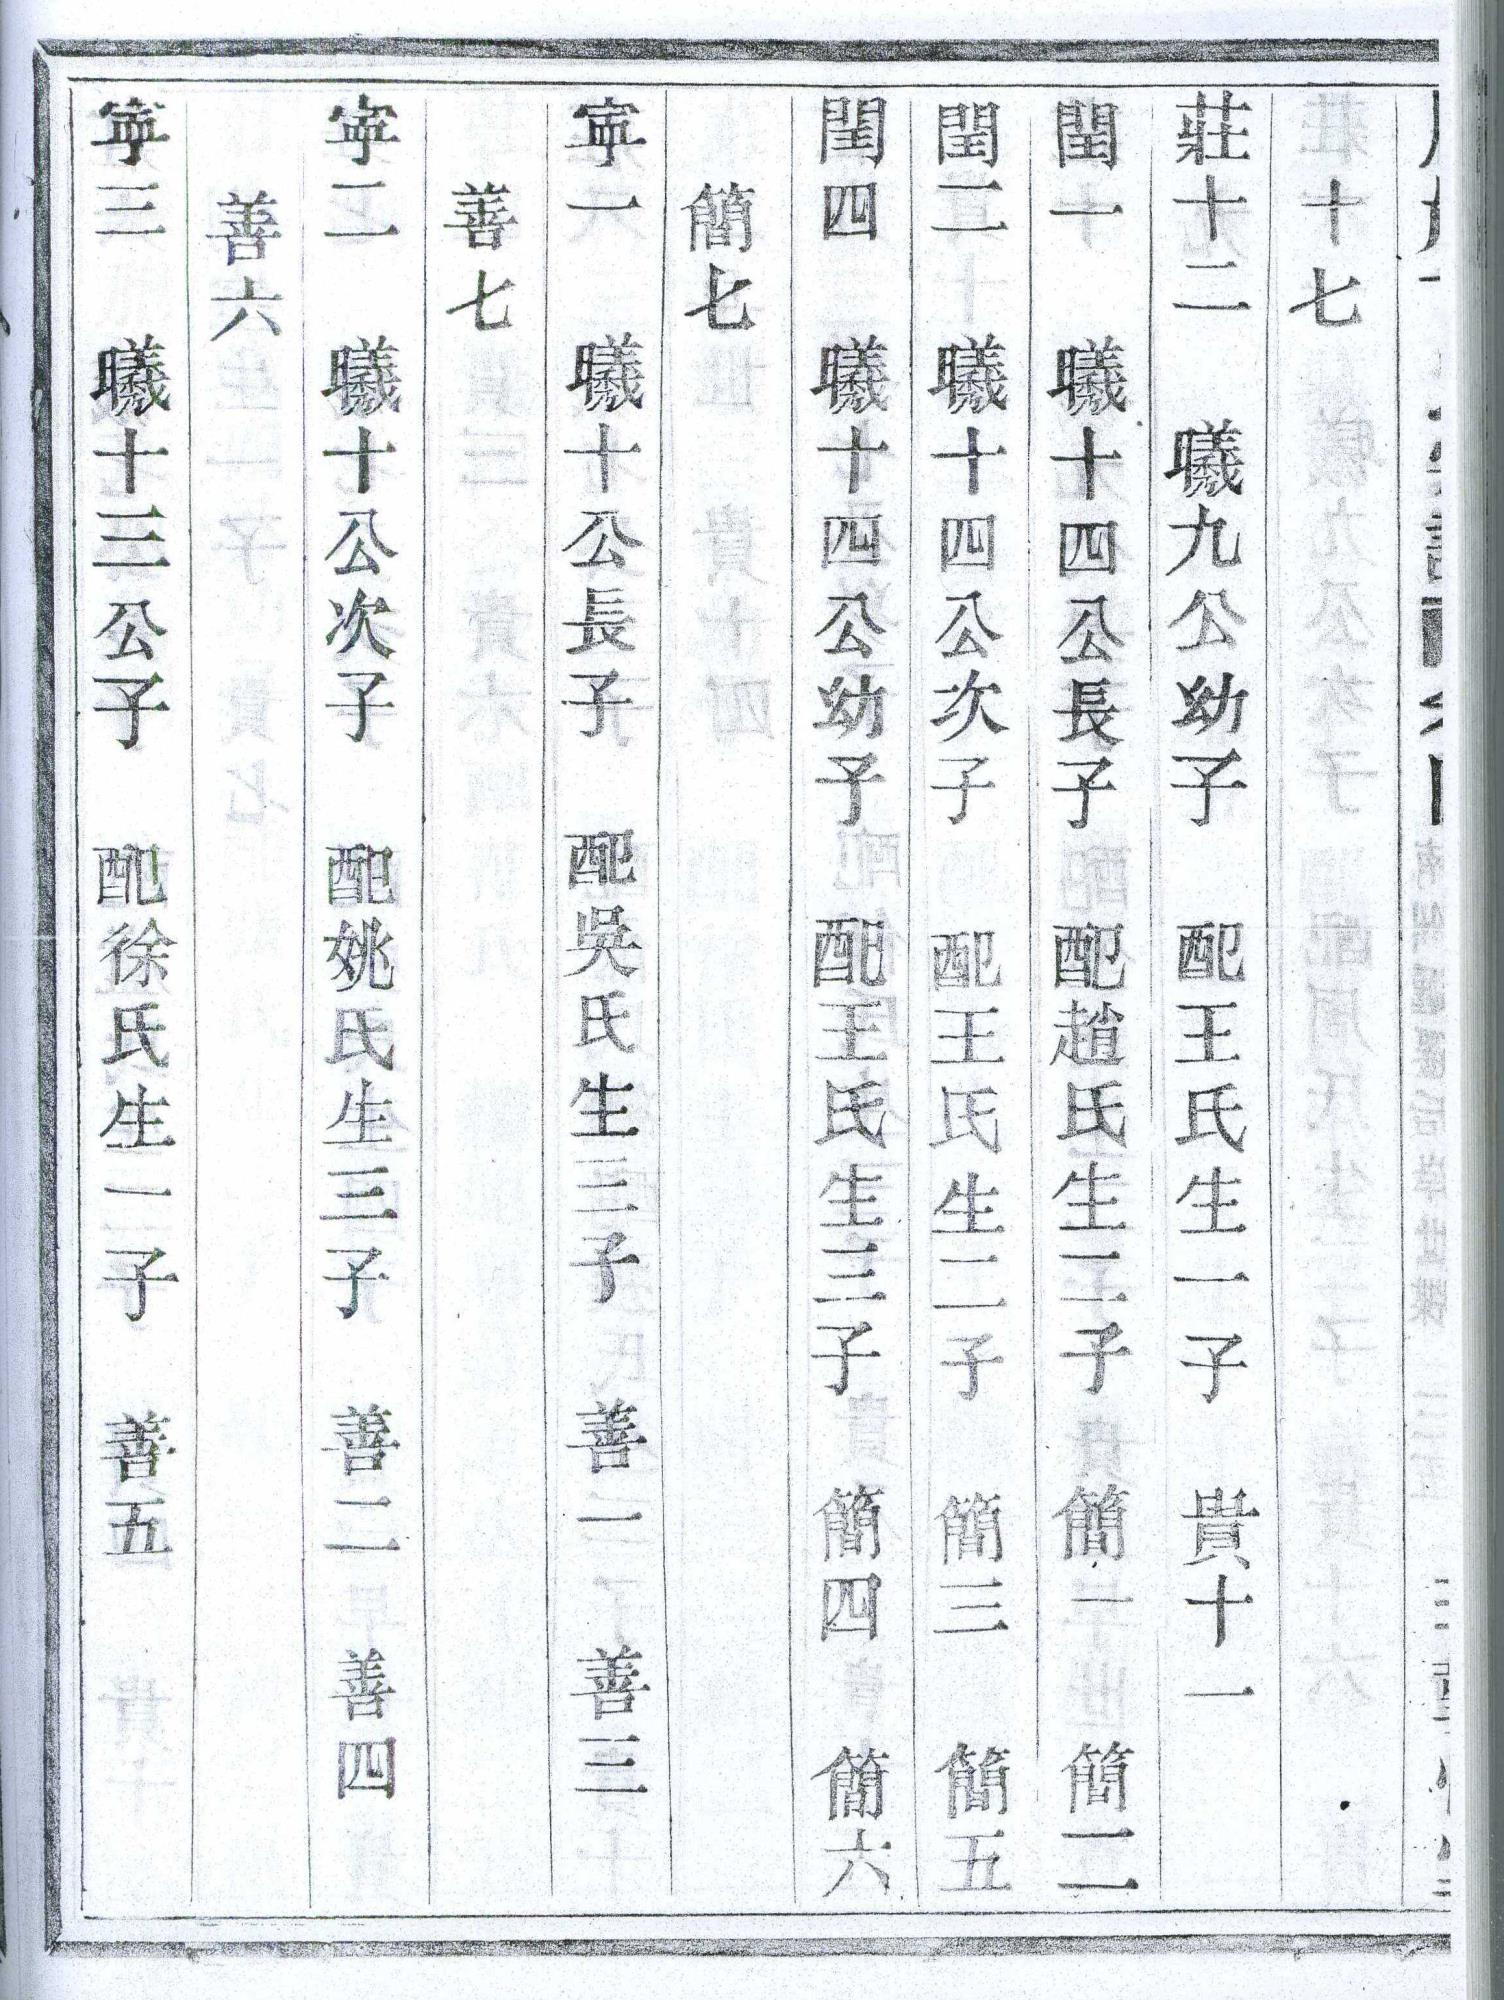 十七
莊十二　曦九公幼子　配王氏生一子　貴十一
閏一　曦十四公長子　配趙氏生二子　簡一　簡二
閏二　曦十四公次子　配王氏生二子　簡三　簡五
閏四　曦十四公幼子　配王氏生三子　簡四　簡六
簡七
寧一　曦十公長子　配吳氏生三子　善一　善三
善七
寧二　曦十公次子　配姚氏生三子　善二　善四
善六
寧三　曦十三公子　配徐氏生一子　善五